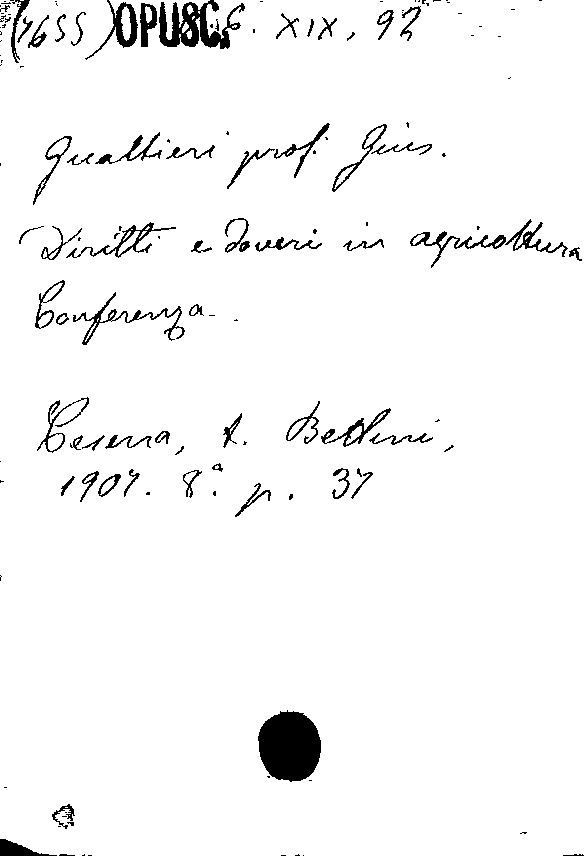 (7655) OPUSC. 6. XIX, 92
Gualtieri prof. Gius.
Diritti e doveri in agricoltura
Conferenza.
Cesena, t. Bettini,
1907. 8.° p. 37